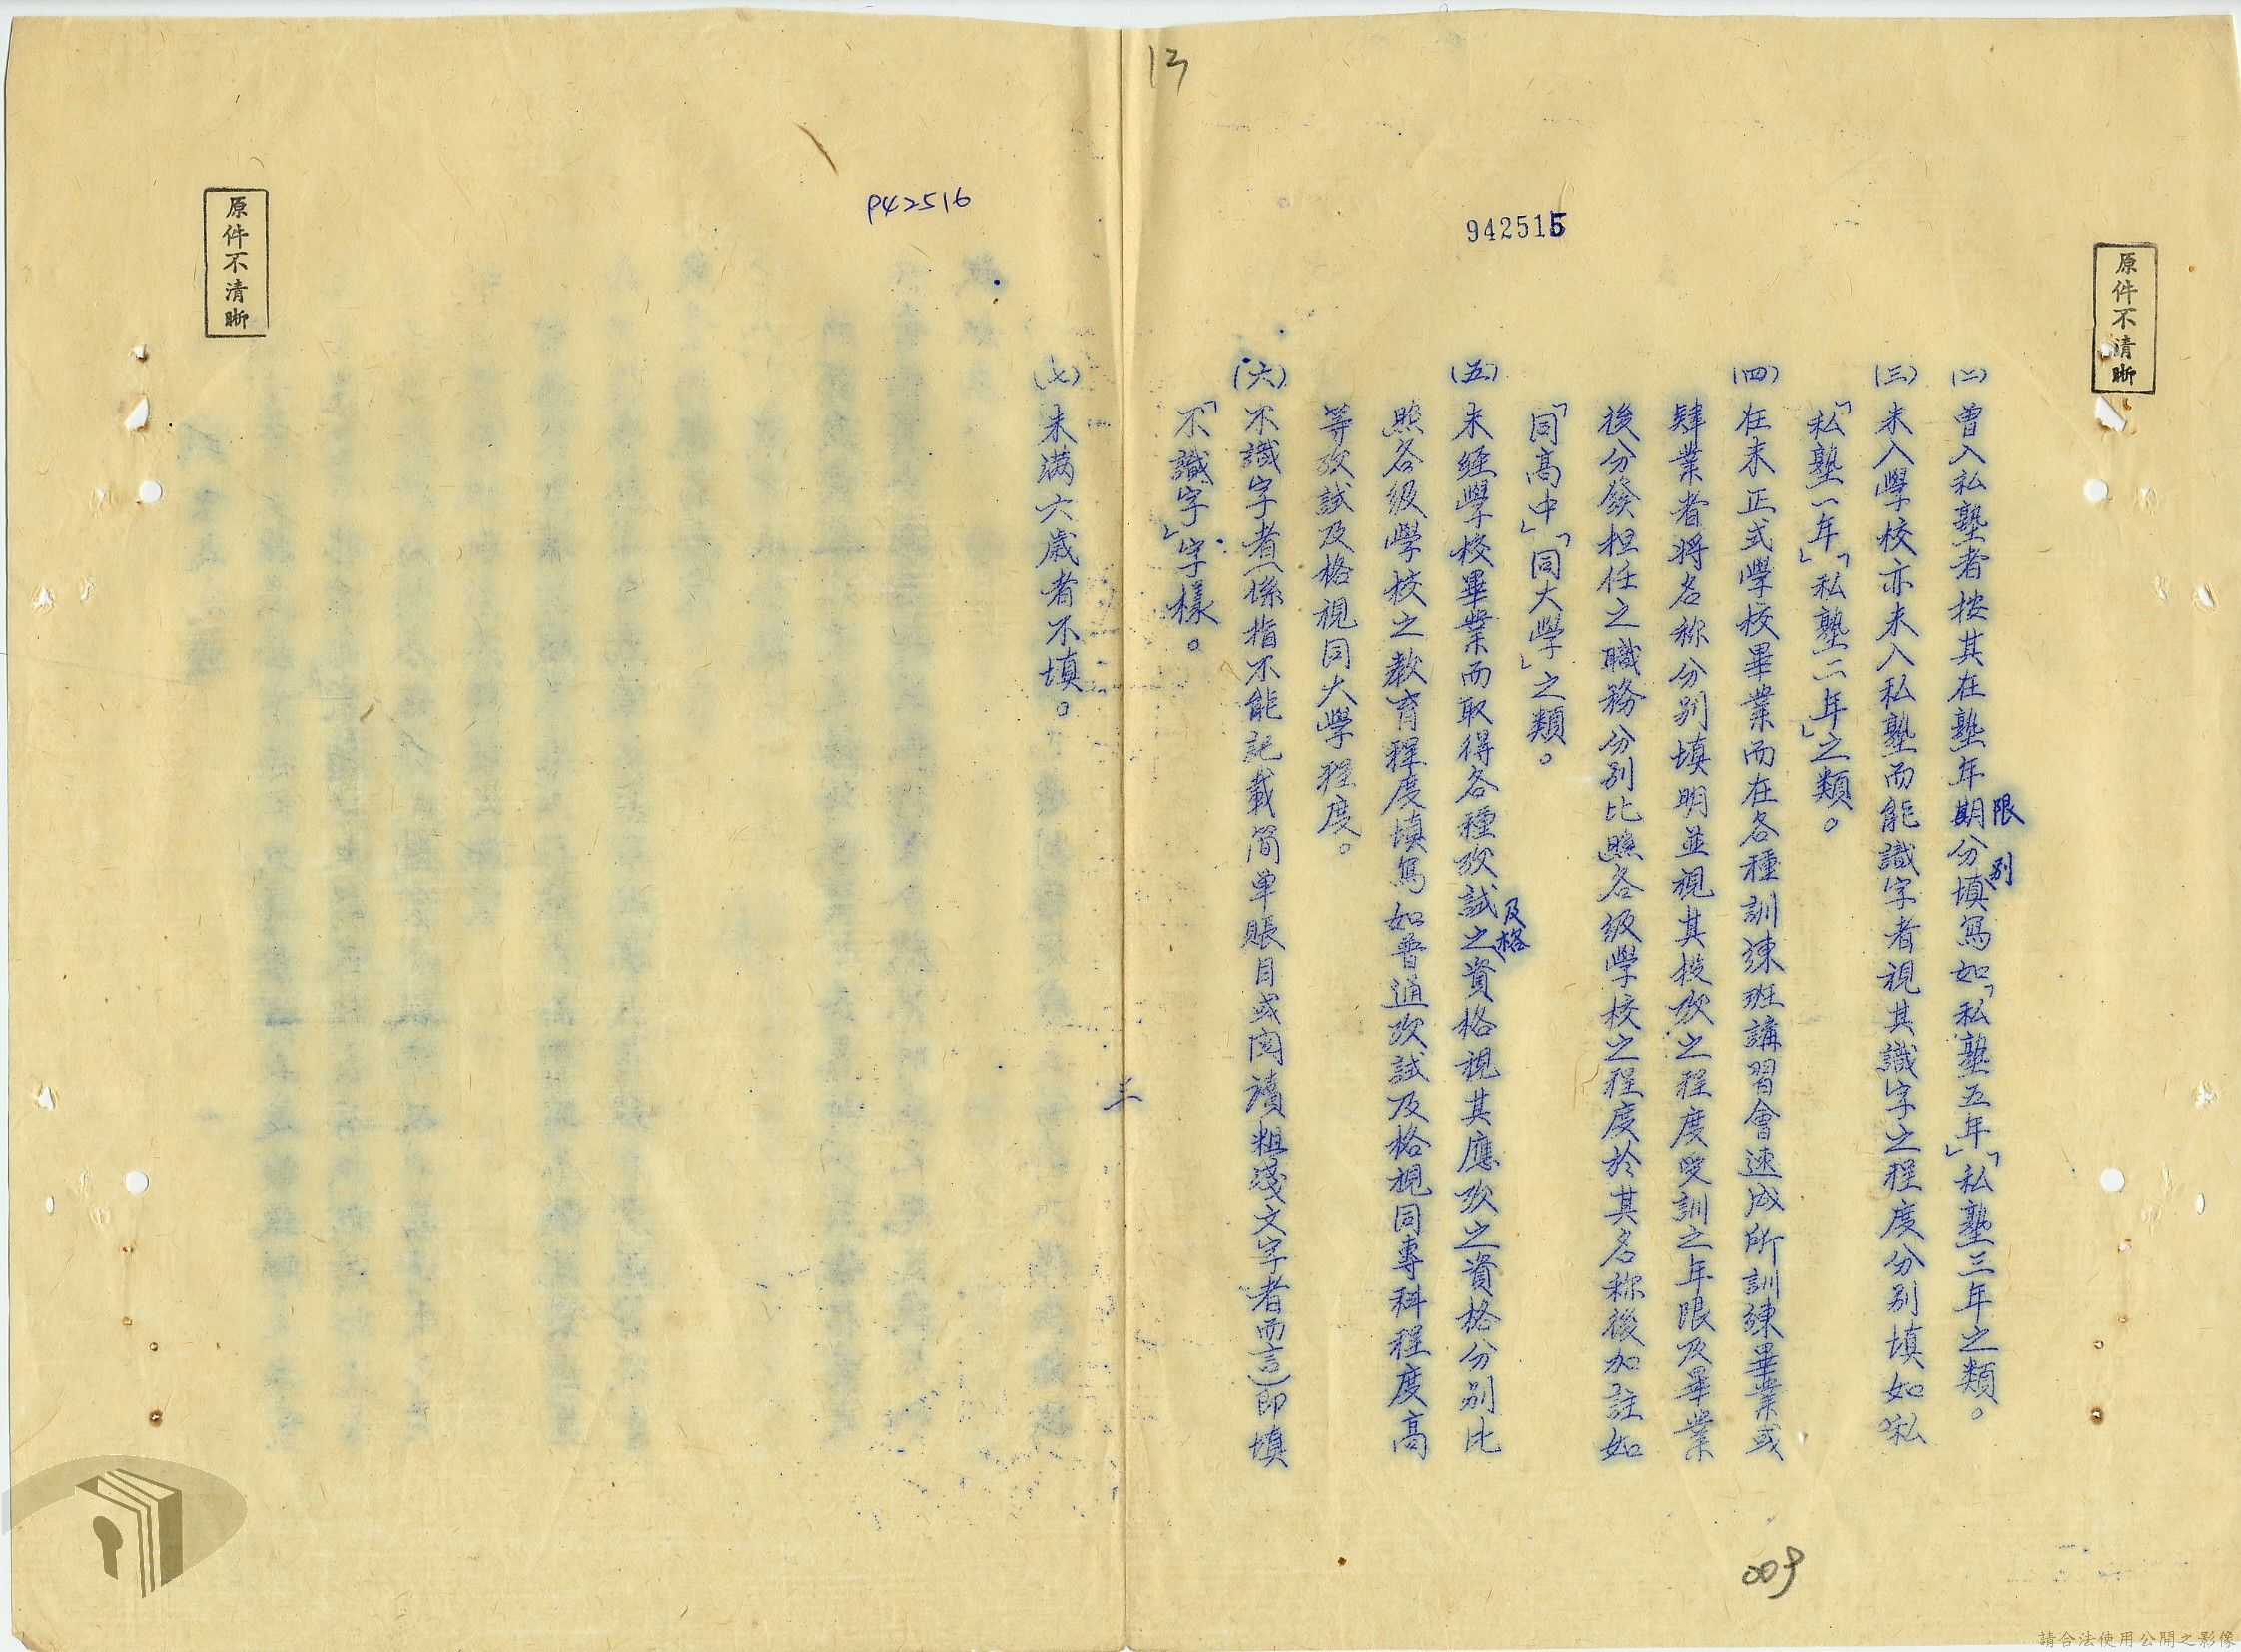 13
942515
P42516
原件不清晰
(二)曾入私塾者按其在塾年期限分別填寫如「私塾五年」「私塾三年之類。
(三)未入學校亦未入私塾而能識字者視其識字之程度分別填如私
「私塾一年」「私塾二年」之類。
(四)在未正式學校畢業而在各種訓練班講習會速成所訓練畢業或
肄業者將名称分別填明並視其投攷之程度受訓之年限及畢業
後分發担任之職務分別比照各級學校之程度於其名称後加註如
「同高中」「同大學」之類。
(五)未經學校畢業而取得各種攷試之及格資格視其應攷之資格分別比
照各級學校之教育程度填寫如普通攷試及格視同專科程度高
等攷試及格視同大學程度。
(六)不識字者(係指不能記載簡单賬目或閱讀粗淺文字者而言)即填
「不識字」字樣。
三
(七)未滿六歲者不填。
原件不清晰
009
請合法使用公開之影像